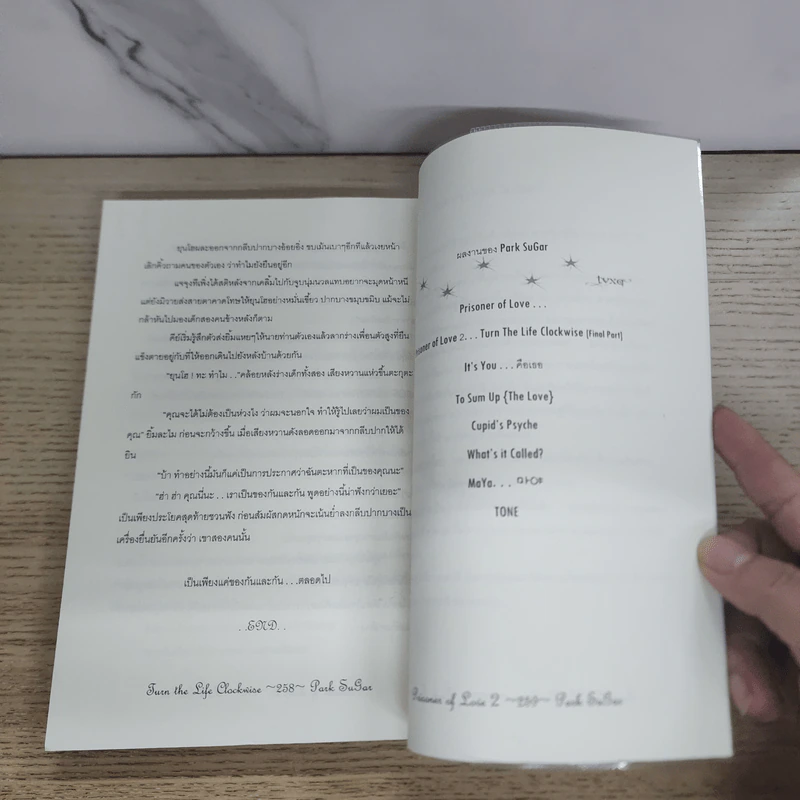 ยุนโฮผละออกจากกลีบปากบางอ้อยอิ่ง ขบเม้นเบาๆอีกทีแล้วเงยหน้า
เลิกคิ้วถามคนของตัวเอง ว่าทำไมยังยืนอยู่อีก
แจจุงที่เพิ่งได้สติหลังจากเคลิ้มไปกับจูบนุ่มนวลแทบอยากจะมุดหน้าหนี
แต่ยังมิวายส่งสายตาคาดโทษให้ยุนโฮอย่างหมั่นเขี้ยว ปากบางขมุบขมิบ แม้จะไม่
กล้าหันไปมองเด็กสองคนข้างหลังก็ตาม
คีย์เริ่มรู้สึกตัวส่งยิ้มแหยๆให้นายท่านตัวเองแล้วลากร่างเพื่อนตัวสูงที่ยืน
แข็งตายอยู่กับที่ให้ออกเดินไปยังหลังบ้านด้วยกัน
"ยุนโฮ ! ทะ ทำไม . ." คล้อยหลังร่างเด็กทั้งสอง เสียงหวานแหวขึ้นตะกุตะ
กัก
"คุณจะได้ไม่ต้องเป็นห่วงไง ว่าผมจะนอกใจ ทำให้รู้ไปเลยว่าผมเป็นของ
คุณ" ยิ้มละไม ก่อนจะกว้างขึ้น เมื่อเสียงหวานดังลอดออกมาจากกลีบปากให้ได้
ยิน
"บ้า ทำอย่างนี้มันก็แค่เป็นการประกาศว่าฉันตะหากที่เป็นของคุณนะ"
"ฮ่า ฮ่า คุณนี่นะ . . เราเป็นของกันและกัน พูดอย่างนี้น่าฟังกว่าเยอะ"
เป็นเพียงประโยคสุดท้ายชวนฟัง ก่อนสัมผัสกดหนักจะเน้นย้ำลงกลีบปากบางเป็น
เครื่องยืนยันอีกครั้งว่า เขาสองคนนั้น
เป็นเพียงแค่ของกันและกัน . . .ตลอดไป
. .END. .
Turn the Life Clockwise ~258~ Park SuGar
ผลงานของ Park SuGar
Prisoner of Love . . .
Prisoner of Love 2. . . Turn The Life Clockwise (Final Part)
It's You . . . คือเธอ
To Sum Up {The Love}
Cupid's Psyche
What's it Called?
MaYa. . . 마야
TONE
Prisoner of Love 2 ~259~ Park SuGar